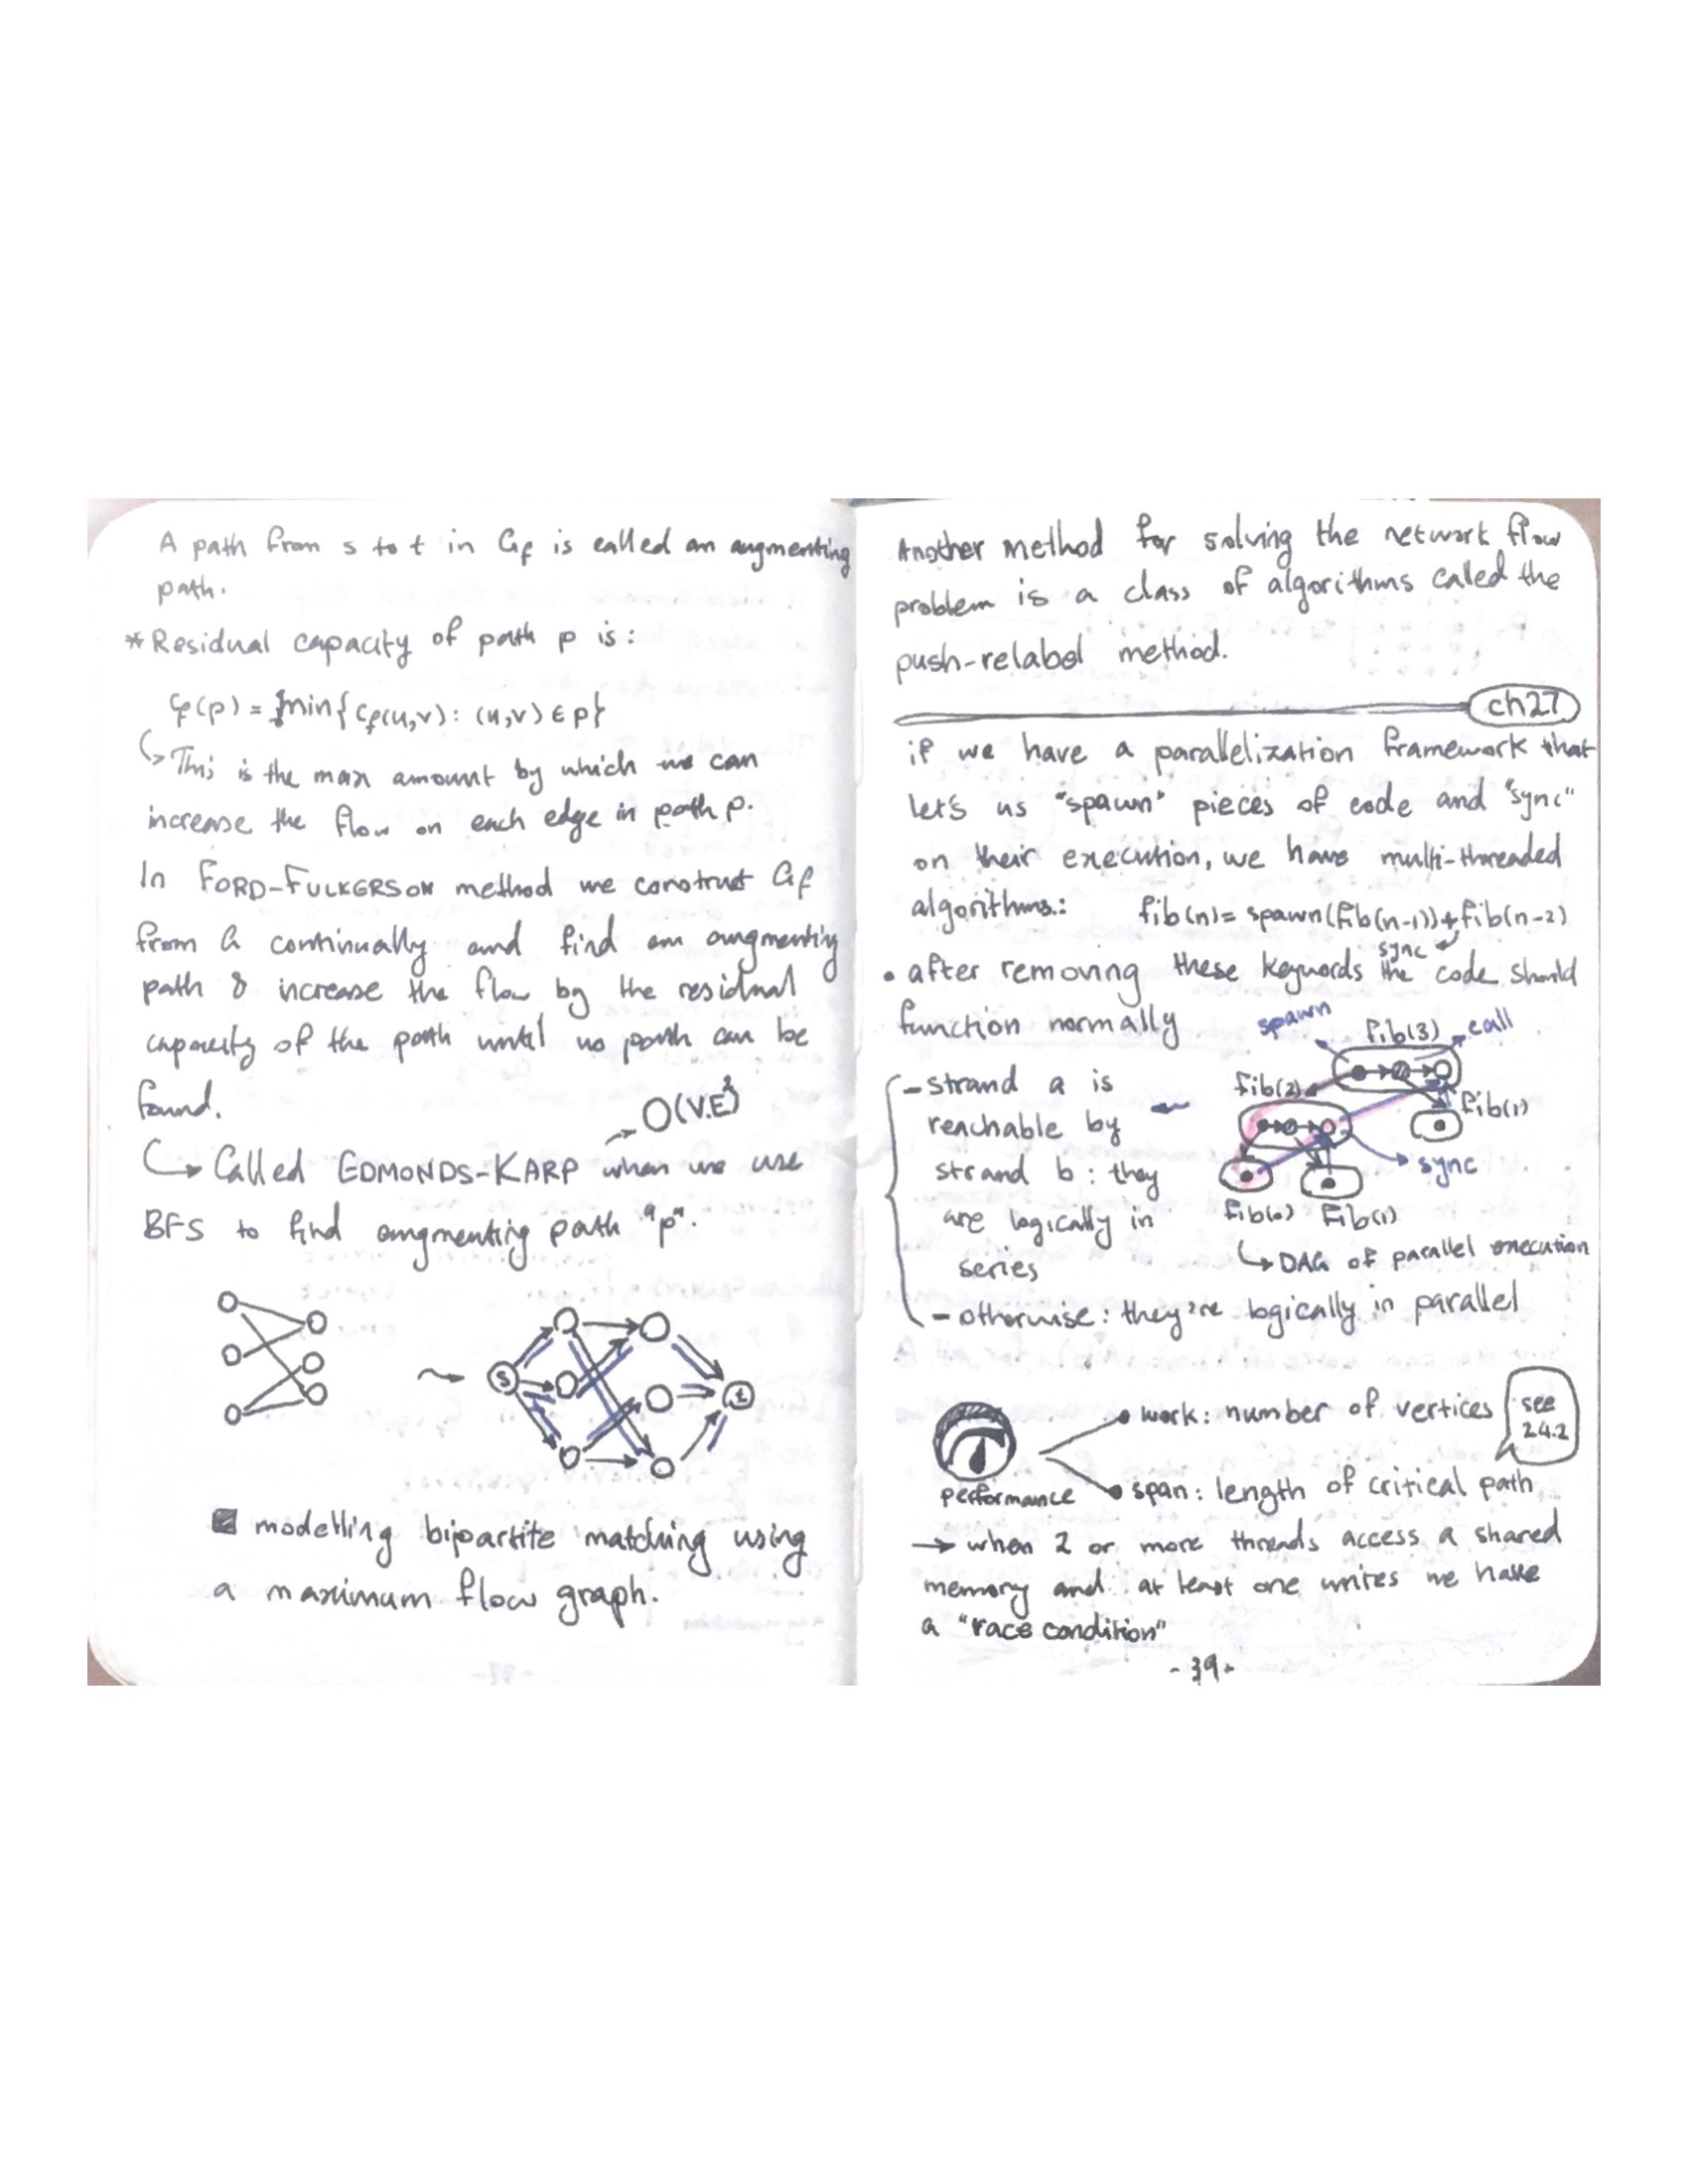 A path from s to t in Gf is called an augmenting
path.
* Residual capacity of path p is:
cf(p) = min{cf(u,v): (u,v) ∈ p}
↳ This is the max amount by which we can
increase the flow on each edge in path p.
In FORD-FULKERSON method we construct Gf
from G continually and find an augmenting
path & increase the flow by the residual
capacity of the path until no path can be
found.
O(V.E²)
↳ Called EDMONDS-KARP when we use
BFS to find augmenting path "p".
s
t
modelling bipartite matching using
a maximum flow graph.
Another method for solving the network flow
problem is a class of algorithms called the
push-relabel method.
ch27
if we have a parallelization framework that
let's us "spawn" pieces of code and "sync"
on their execution, we have multi-threaded
algorithms.: fib(n)= spawn(fib(n-1))+fib(n-2)
sync
• after removing these keywords the code should
function normally
spawn fib(3) call
fib(2)
fib(1)
sync
fib(0) fib(1)
↳ DAG of parallel execution
- strand a is
reachable by
strand b: they
are logically in
series
- otherwise: they're logically in parallel
performance
• work: number of vertices
see
24.2
• span: length of critical path
→ when 2 or more threads access a shared
memory and at least one writes we have
a "race condition"
- 39 -